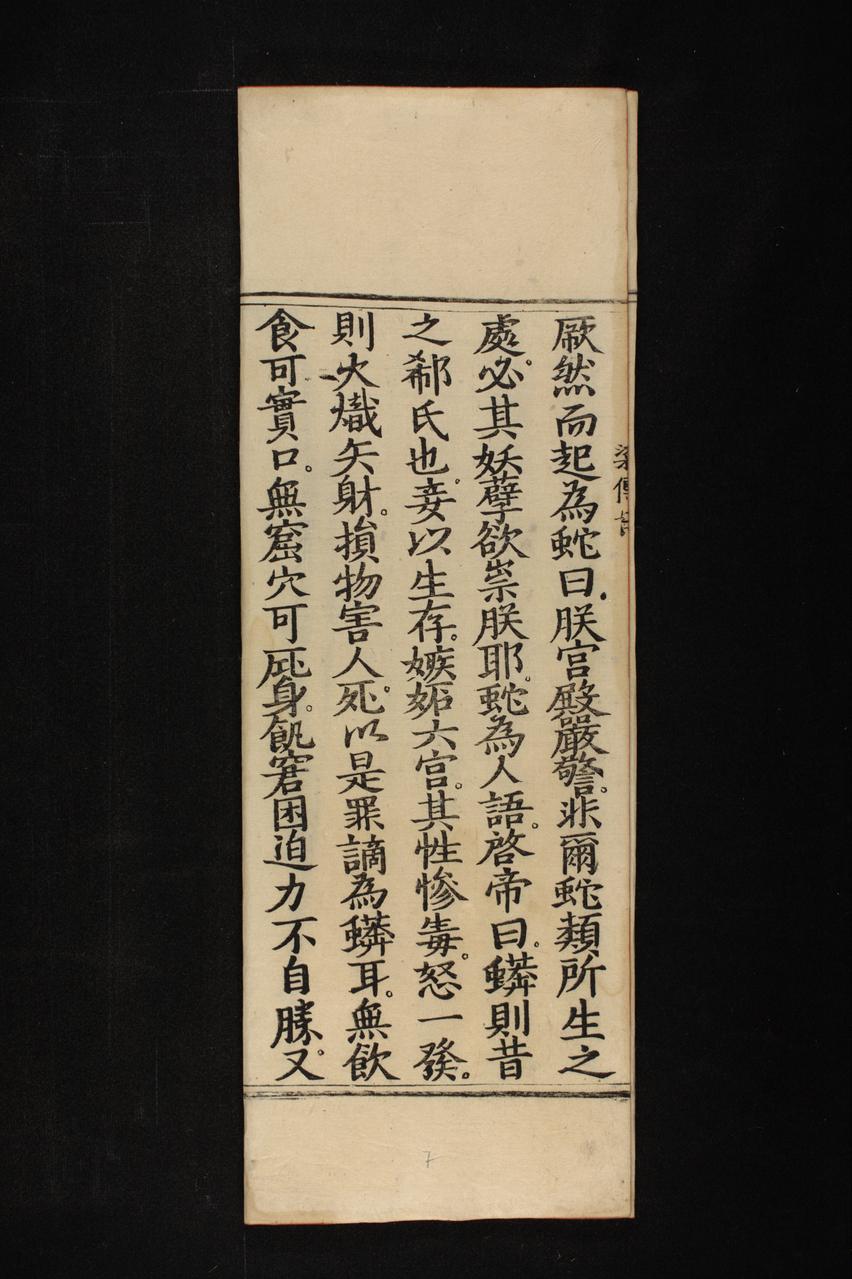 厥然而起為蛇曰朕宮殿嚴警。非爾蛇類所生之
處。必其妖孽欲祟朕耶。蛇為人語。啓帝曰。蟒則昔
之郗氏也。妾以生存。嫉妬六宮。其性慘毒。怒一發。
則火熾矢射。損物害人。死。以是罪謫為蟒耳。無飲
食可實口。無窟穴可庇身。飢窘困迫力不自勝。又